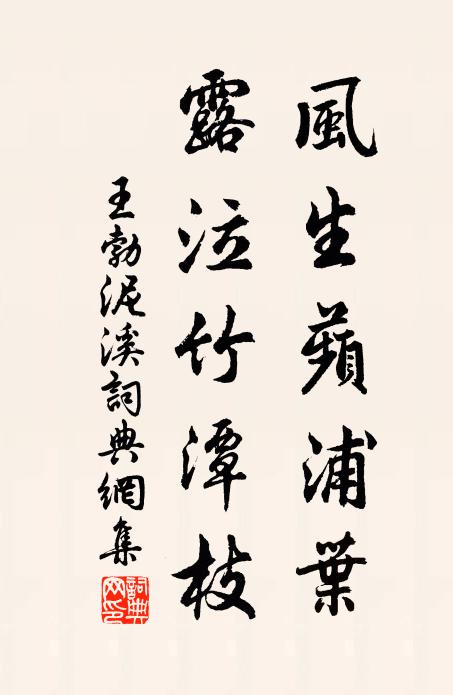 風生蘋浦葉
露泣竹潭枝
王勃泥溪詞典網集
詞典網印